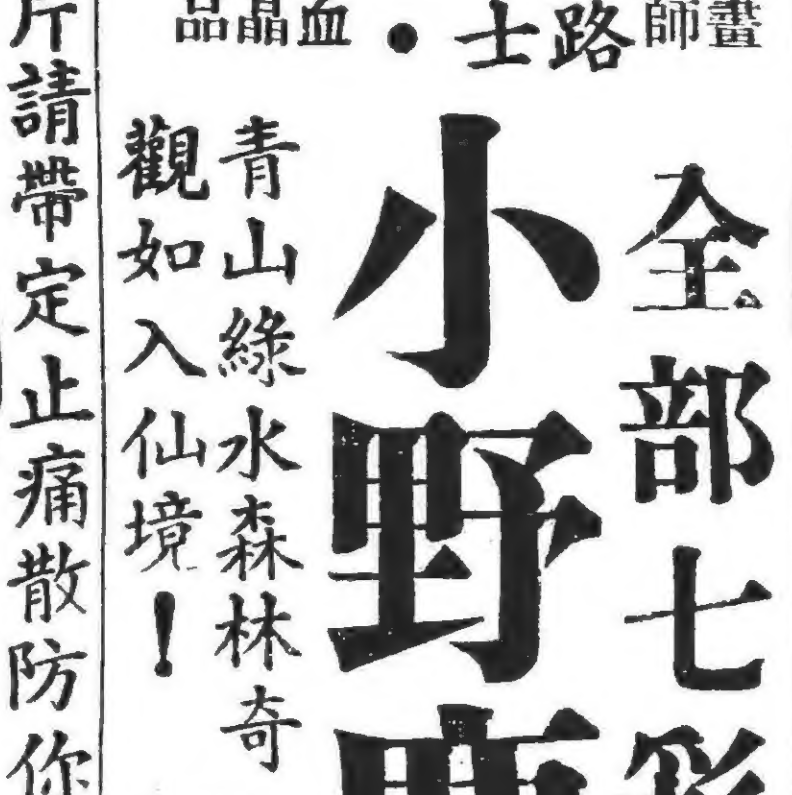 畫師路士・血晶品
全部七彩
小野
青山綠水森林奇
觀如入仙境！
片請帶定止痛散防你